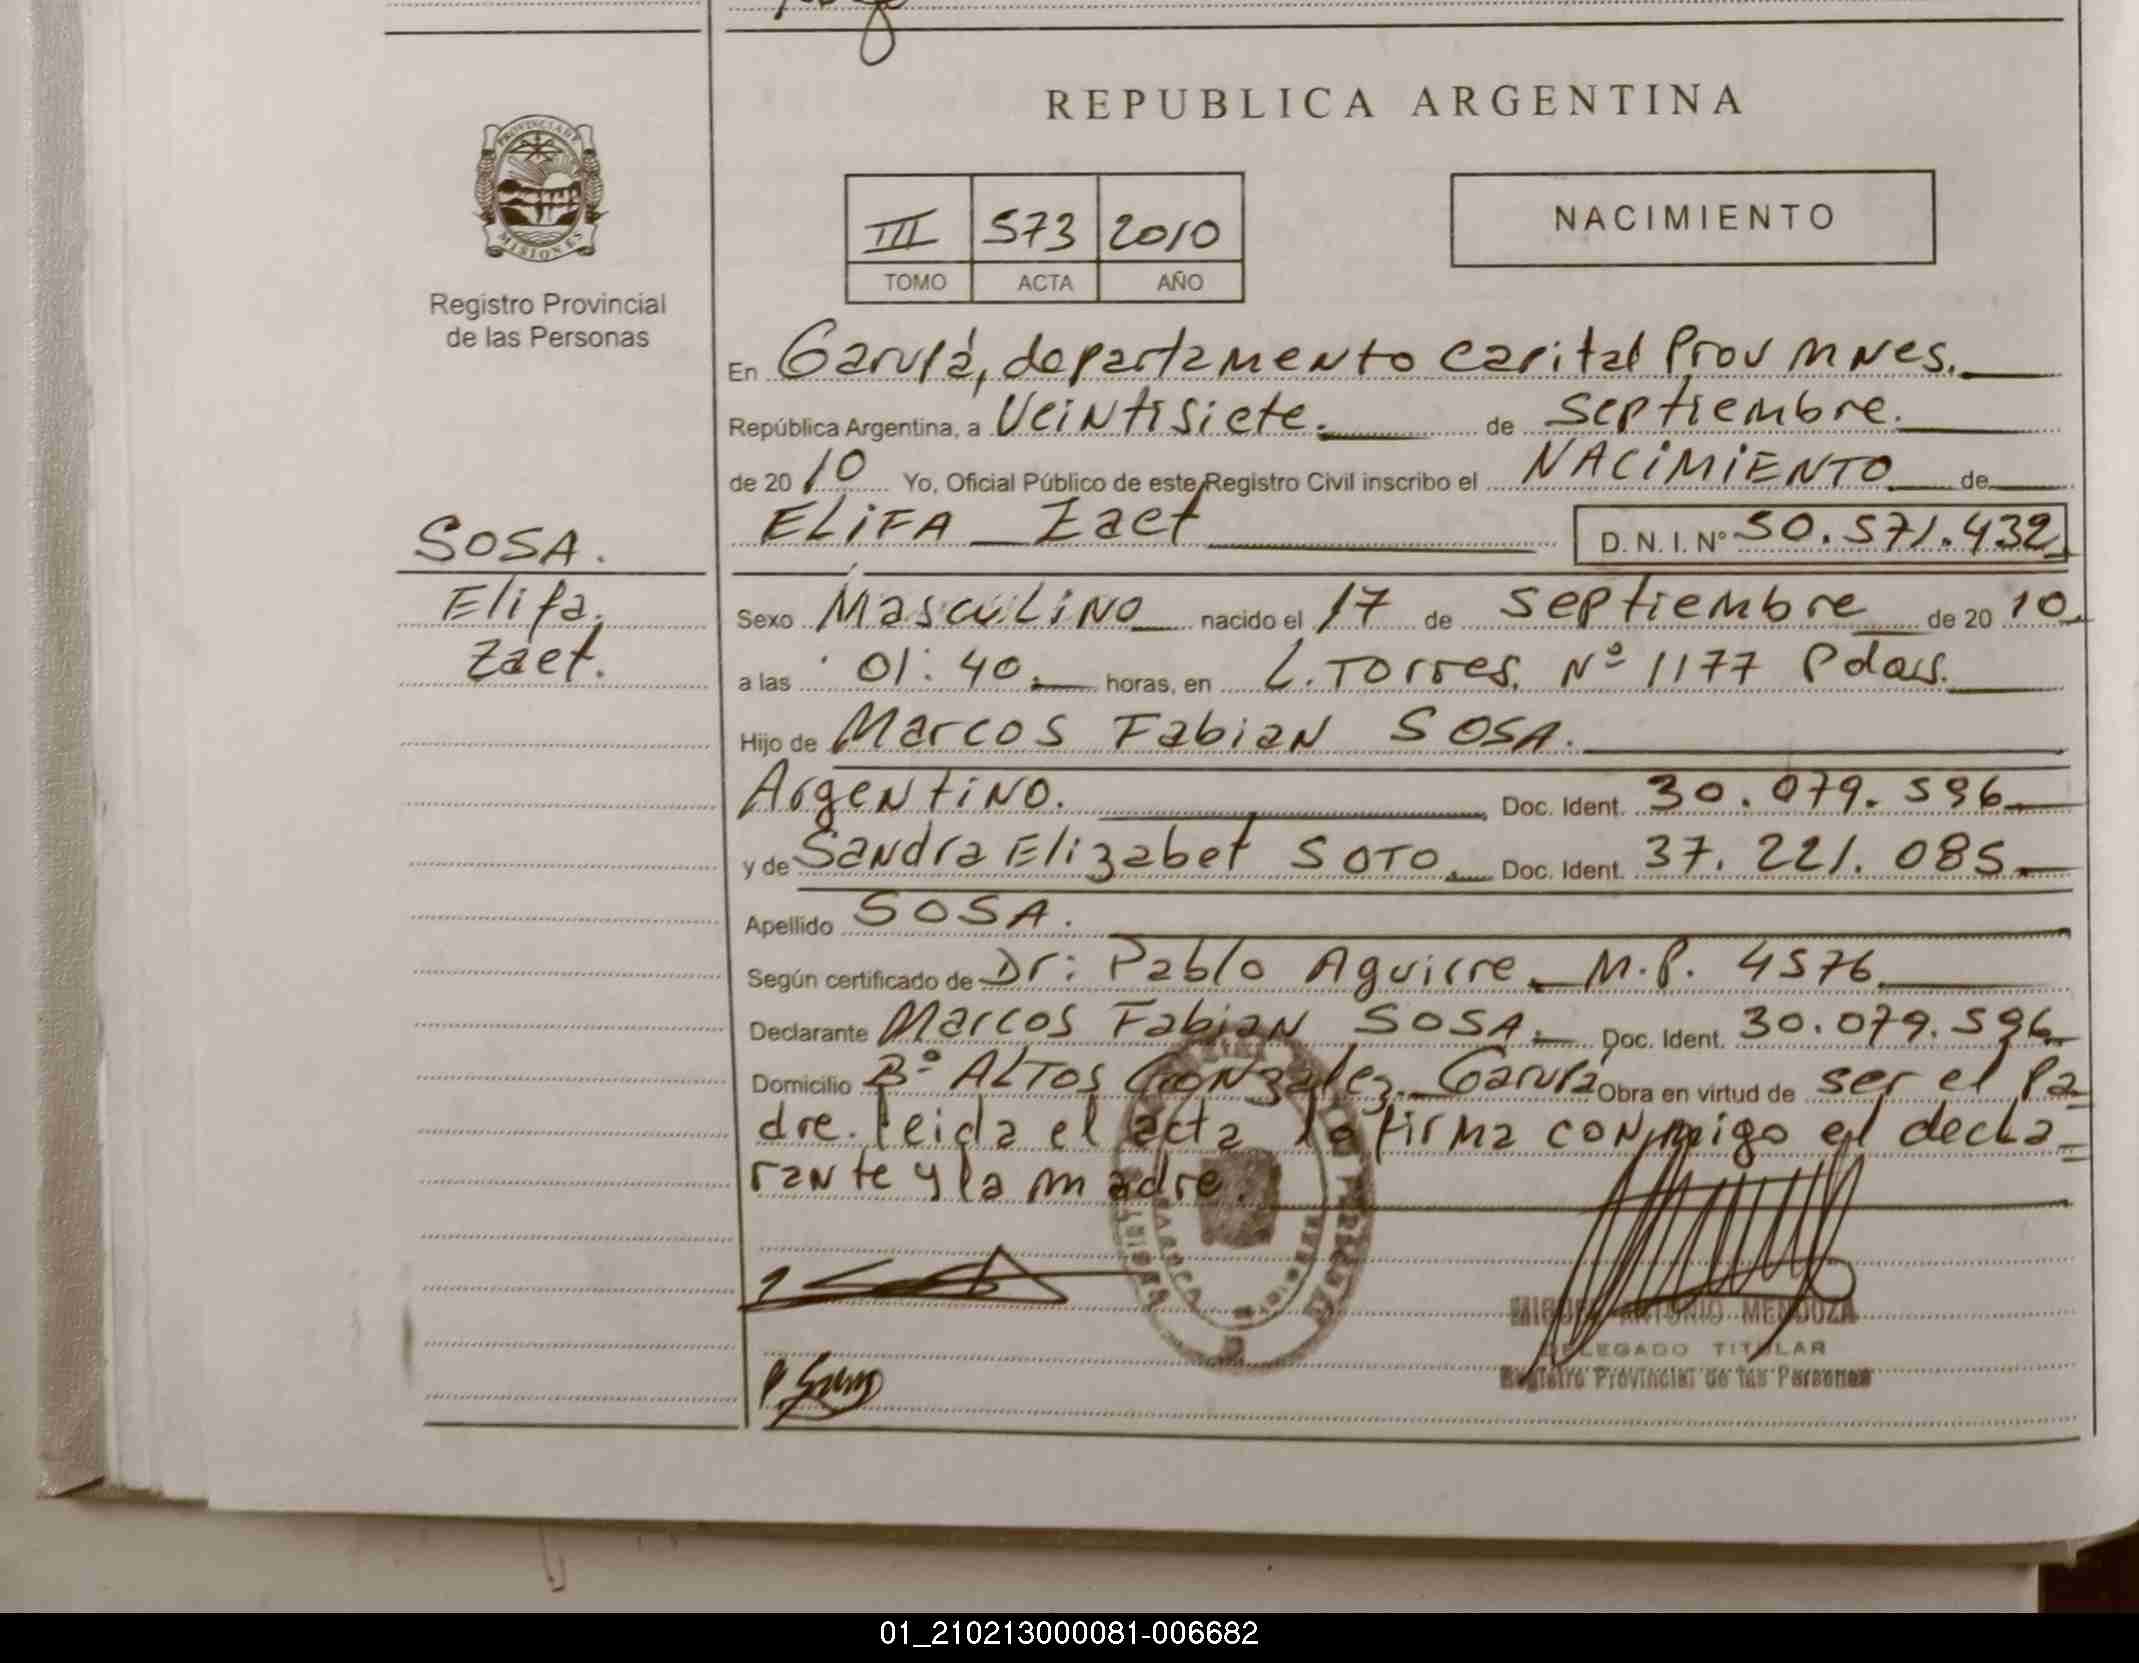 REPUBLICA ARGENTINA
PROVINCIA DE
MISIONES
Registro Provincial
de las Personas
III 573 2010
TOMO ACTA AÑO
NACIMIENTO
En Garupá, departamento Capital Prov Mnes.
República Argentina, a Veintisiete. de Septiembre.
de 2010 Yo, Oficial Público de este Registro Civil inscribo el NACIMIENTO de
ELIFA Zaet D. N. I. N° 50.571.432
SOSA.
Elifa.
Zaet.
Sexo Masculino nacido el 17 de Septiembre de 2010
a las 01:40. horas, en L. Torres. Nº 1177 Pdas.
Hijo de Marcos Fabian SOSA.
Argentino. Doc. Ident. 30.079.596
y de Sandra Elizabet SOTO. Doc. Ident. 37.221.085
Apellido SOSA.
Según certificado de Dr: Pablo Aguirre M.P. 4576
Declarante Marcos Fabian SOSA. Doc. Ident. 30.079.596
Domicilio Bº ALTOS Gonzalez. Garupá Obra en virtud de ser el Pa=
dre. leida el acta la firma conmigo el decla=
rante y la madre.
MIGUEL ANTONIO MENDOZA
DELEGADO TITULAR
Registro Provincial de las Personas
01_210213000081-006682